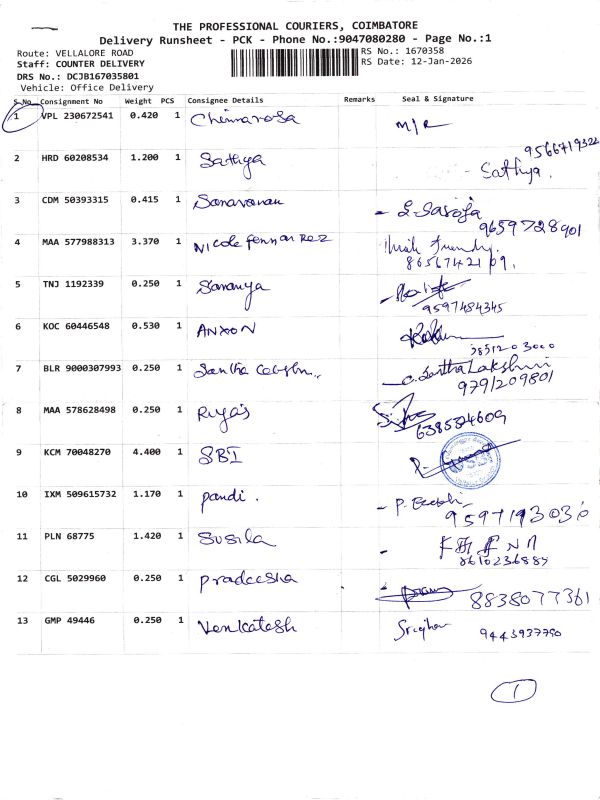 THE PROFESSIONAL COURIERS, COIMBATORE
Delivery Runsheet - PCK - Phone No.:9047080280 - Page No.:1
Route: VELLALORE ROAD RS No.: 1670358
Staff: COUNTER DELIVERY RS Date: 12-Jan-2026
DRS No.: DCJB167035801
Vehicle: Office Delivery
S No Consignment No Weight PCS Consignee Details Remarks Seal & Signature
1 VPL 230672541 0.420 1 Chinnarosa M/R
2 HRD 60208534 1.200 1 Sathya Sathya. 9566719322
3 CDM 50393315 0.415 1 Saravanan - S. Saroja 9659728901
4 MAA 577988313 3.370 1 Nicole fernnandez 8656742109.
5 TNJ 1192339 0.250 1 Saranya 9597484345
6 KOC 60446548 0.530 1 ANXON 3851203000
7 BLR 9000307993 0.250 1 Santha - C. Santha Lakshmi
9791209801
8 MAA 578628498 0.250 1 Riyas 6385324609
9 KCM 70048270 4.400 1 SBI
10 IXM 509615732 1.170 1 pandi. - P.
9597193030
11 PLN 68775 1.420 1 Susila -
8610236889
12 CGL 5029960 0.250 1 pradeesha 8838077361
13 GMP 49446 0.250 1 Venkatesh 9443937790
1